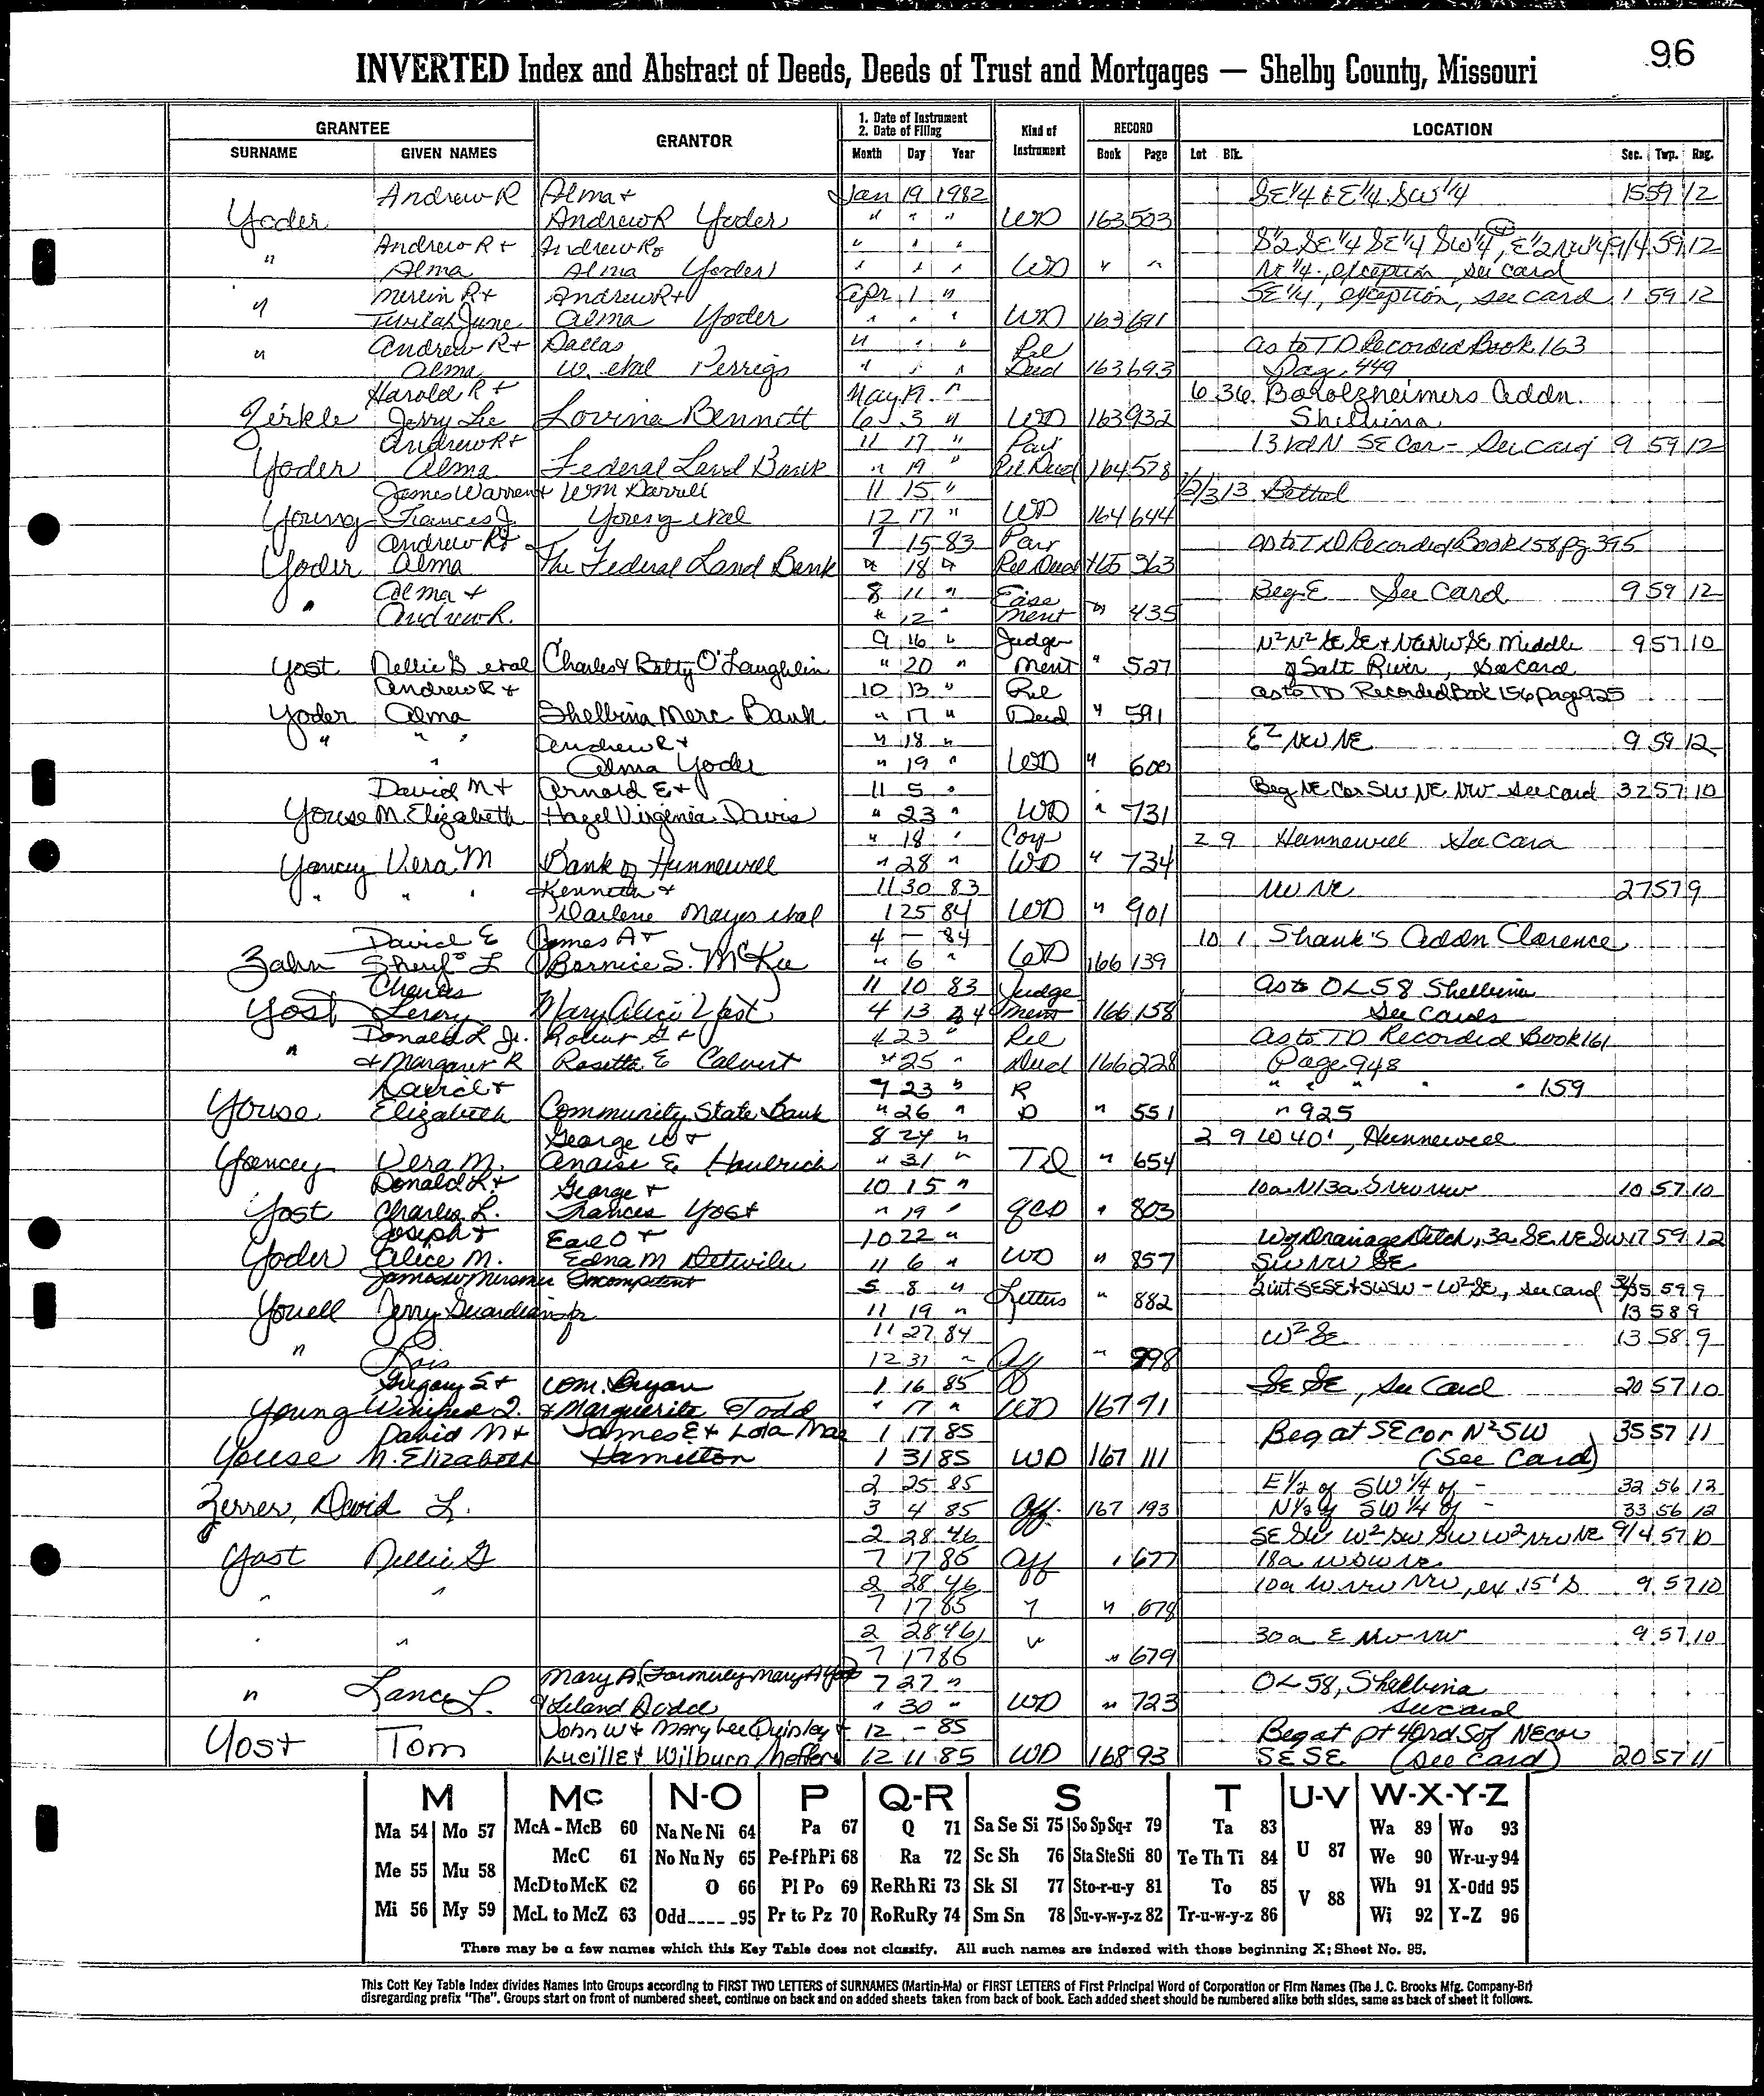 96
INVERTED Index and Abstract of Deeds, Deeds of Trust and Mortgages — Shelby County, Missouri
GRANTEE GRANTOR 1. Date of Instrument 2. Date of Filing Kind of Instrument RECORD LOCATION
SURNAME GIVEN NAMES Month Day Year Book Page Lot Blk. Sec. Twp. Rng.
Andrew R Alma + Jan 19 1982 SE 1/4 & E 1/4 SW 1/4 15 59 12
Yoder Andrew R Yoder " " " WD 163 503
Andrew R + Andrew R & " " " S 1/2 SE 1/4 SE 1/4 SW 1/4, E 1/2 NW 1/4 9/4 59 12
" Alma Alma Yoder " " " WD " " NE 1/4, exception, see card
Merlin R + Andrew R + Apr 1 " SE 1/4, exception, see card 1 59 12
" June Alma Yoder " " " WD 163 691
Andrew R + Dallas " " " Rel as to TD Recorded Book 163
" Alma W. etal Perrigo " " " Deed 163 693 Page 449
Harold R + May 19 " 6 36 Addn.
Zirkle Jerry Lee Lovina Bennett 6 3 " WD 163 932 Shelbina
Andrew R + 11 17 " Par 13 rd N SE Cor - See card 9 59 12
Yoder Alma Federal Land Bank " 19 " Rel Deed 164 578
James Warren + Wm Darrell 11 15 " 1/2/3 13 Bethel
Young Frances J. Young etal 12 17 " WD 164 644
Andrew R + 7 15 83 Par as to TD Recorded Book 158 pg 395
Yoder Alma The Federal Land Bank " 18 " Rel Deed 165 363
Alma + 8 11 " Ease Beg E See Card 9 59 12
" Andrew R. " 12 " ment " 435
9 16 " Judge N2 N2 SE SE + NE NW SE Middle 9 57 10
Yost Nellie G etal Charles & Betty O'Laughlin " 20 " ment " 527 of Salt River, See card
Andrew R + 10 13 " Rel as to TD Recorded Book 156 page 925
Yoder Alma Shelbina Merc Bank " 17 " Deed " 591
" " " Andrew R + " 18 " E2 NW NE 9 59 12
" Alma Yoder " 19 " WD " 600
David M + Arnold E + 11 5 " Beg NE Cor SW NE NW see card 32 57 10
Youse M. Elizabeth Hazel Virginia Davis " 23 " WD " 731
" 18 " Corp 2 9 Hunnewell See Card
Yancey Vera M Bank of Hunnewell " 28 " WD " 734
" " " Kenneth + 11 30 83 NW NE 27 57 9
Darlene Mayes etal 1 25 84 WD " 901
David E James A + 4 — 84 10 1 Shank's Addn Clarence
Zahn Sheryl L Bernice S. McKee " 6 " WD 166 139
Charles 11 10 83 Judge As to OL 58 Shelbina
Yost Leroy Mary Alice Yost 4 13 84 ment 166 158 See Cards
Donald L Jr. Robert G + 4 23 " Rel As to TD Recorded Book 161
" + Margaret R Rosetta E Calvert " 25 " Deed 166 228 Page 948
David + 7 23 " R " " " " " 159
Youse Elizabeth Community State Bank " 26 " D " 551 " 925
George W + 8 24 " 2 9 W 40', Hunnewell
Yancey Vera M. Anaise E. " 31 " TD " 654
Donald L + George + 10 15 " 10a N 13a S NW NW 10 57 10
Yost Charles L. Frances Yost " 19 " QCD " 803
Joseph + Earl O + 10 22 " W of Drainage Ditch, 3a SE NE SW 17 59 12
Yoder Alice M. Edna M Detwiler 11 6 " WD " 857 SW NW SE
James W Incompetent 5 8 " 2 int SE SE + SW SW - W2 SE, see card 34/35 59 9
Youell Jerry Guardian 11 19 " Letters " 882 13 58 9
11 27 84 W2 SE 13 58 9
" Lois 12 31 " Aff " 998
Gregory S + Wm. Bryan 1 16 85 SE SE, See Card 20 57 10
Young Winifred J. & Marguerite Todd " 17 " WD 167 91
David M + James E + Lota Mae 1 17 85 Beg at SE cor N2 SW 35 57 11
Youse M. Elizabeth Hamilton 1 31 85 WD 167 111 (See Card)
2 25 85 E 1/2 of SW 1/4 of - 32 56 12
Zerrer, David L. 3 4 85 Aff. 167 193 N 1/2 of SW 1/4 of - 33 56 12
2 28 46 SE SW W2 SW SW W2 NW NE 9/4 57 10
Yost Nellie G 7 17 85 Aff " 677 18a W SW NE
2 28 46 10a W NW NW, ex 15' S 9 57 10
" " 7 17 85 " " 678
2 28 46 30a E NW NW 9 57 10
" " 7 17 85 " " 679
Mary A (Formerly Mary A Yost) 7 27 " OL 58, Shelbina
" Lance L. & Leland Dodd " 30 " WD " 723 see card
John W + Mary Lee Quisley + 12 - 85 Beg at pt 40rd S of NE cor
Yost Tom Lucille + Wilburn 12 11 85 WD 168 93 SE SE (See Card) 20 57 11
M Mc N-O P Q-R S T U-V W-X-Y-Z
Ma 54 Mo 57 McA - McB 60 Na Ne Ni 64 Pa 67 Q 71 Sa Se Si 75 So Sp Sq-r 79 Ta 83 U 87 Wa 89 Wo 93
Me 55 Mu 58 McC 61 No Nu Ny 65 Pe-f Ph Pi 68 Ra 72 Sc Sh 76 Sta Ste Sti 80 Te Th Ti 84 We 90 Wr-u-y 94
McD to McK 62 O 66 Pl Po 69 Re Rh Ri 73 Sk Sl 77 Sto-r-u-y 81 To 85 V 88 Wh 91 X-Odd 95
Mi 56 My 59 McL to McZ 63 Odd-----95 Pr to Pz 70 Ro Ru Ry 74 Sm Sn 78 Su-v-w-y-z 82 Tr-u-w-y-z 86 Wi 92 Y-Z 96
There may be a few names which this Key Table does not classify. All such names are indexed with those beginning X; Sheet No. 95.
This Cott Key Table Index divides Names into Groups according to FIRST TWO LETTERS of SURNAMES (Martin-Ma) or FIRST LETTERS of First Principal Word of Corporation or Firm Names (The J. C. Brooks Mfg. Company-Br)
disregarding prefix "The". Groups start on front of numbered sheet, continue on back and on added sheets taken from back of book. Each added sheet should be numbered alike both sides, same as back of sheet it follows.